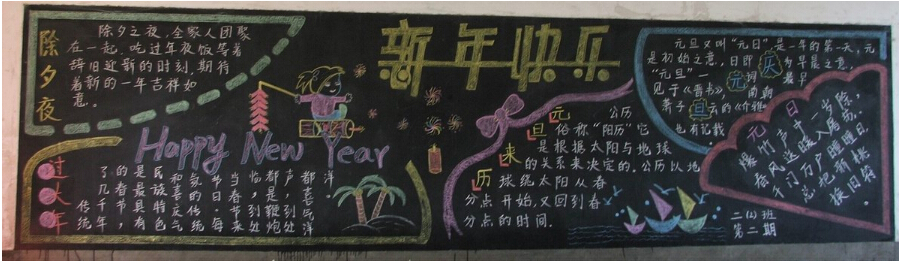 除夕夜
除夕之夜,全家人团聚
在一起,吃过年夜饭等着
辞旧迎新的时刻,期待
着新的一年吉祥如
意。
新年快乐
Happy New Year
过大年
传统
了几千年
的春节,
是最具有
民族特色
和喜庆气
氛的传统
节日.每
当春节来
临,到处
都是鞭炮
声,到处
都喜气洋
洋.
元旦来历
公历
俗称“阳历”它
是根据太阳与地球
的关系来决定的.公历以地
球绕太阳从春
分点开始,又回到春
分点的时间.
庆元旦
元旦又叫“元日”是一年的第一天,元
是初始之意,旦即为早晨之意,
“元旦”一词最早
见于《晋书》,南朝
萧子云的《介雅》
也有记载
元日
爆竹声中一岁除,
春风送暖入屠苏.
千门万户曈曈日,
总把新桃
换旧符.
班
第二期